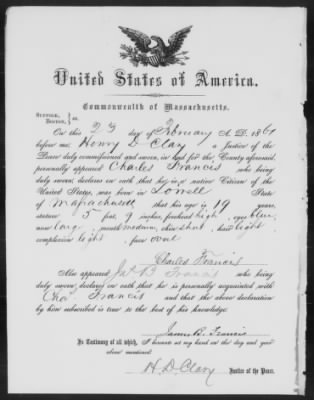 United States of America.
Commonwealth of Massachusetts.
SUFFOLK, } ss.
BOSTON,
On this 23 day of February A. D. 1861
before me, Henry D Clary a Justice of the
Peace duly commissioned and sworn, in and for the County aforesaid,
personally appeared Charles Francis who being
duly sworn, declares on oath that he is a native Citizen of the
United States, was born in Lowell State
of Massachusett that his age is 19 years,
stature 5 feet, 9 inches, forehead high eyes blue
nose long mouth medium, chin short, hair light,
complexion light, face oval
Charles Francis
Also appeared Jas B Francis who being
duly sworn, declares on oath that he is personally acquainted with
Chas Francis and that the above declaration
by him subscribed is true to the best of his knowledge.
James B. Francis
In Testimony of all which, I hereunto set my hand on the day and year
above mentioned.
H. D Clary Justice of the Peace.